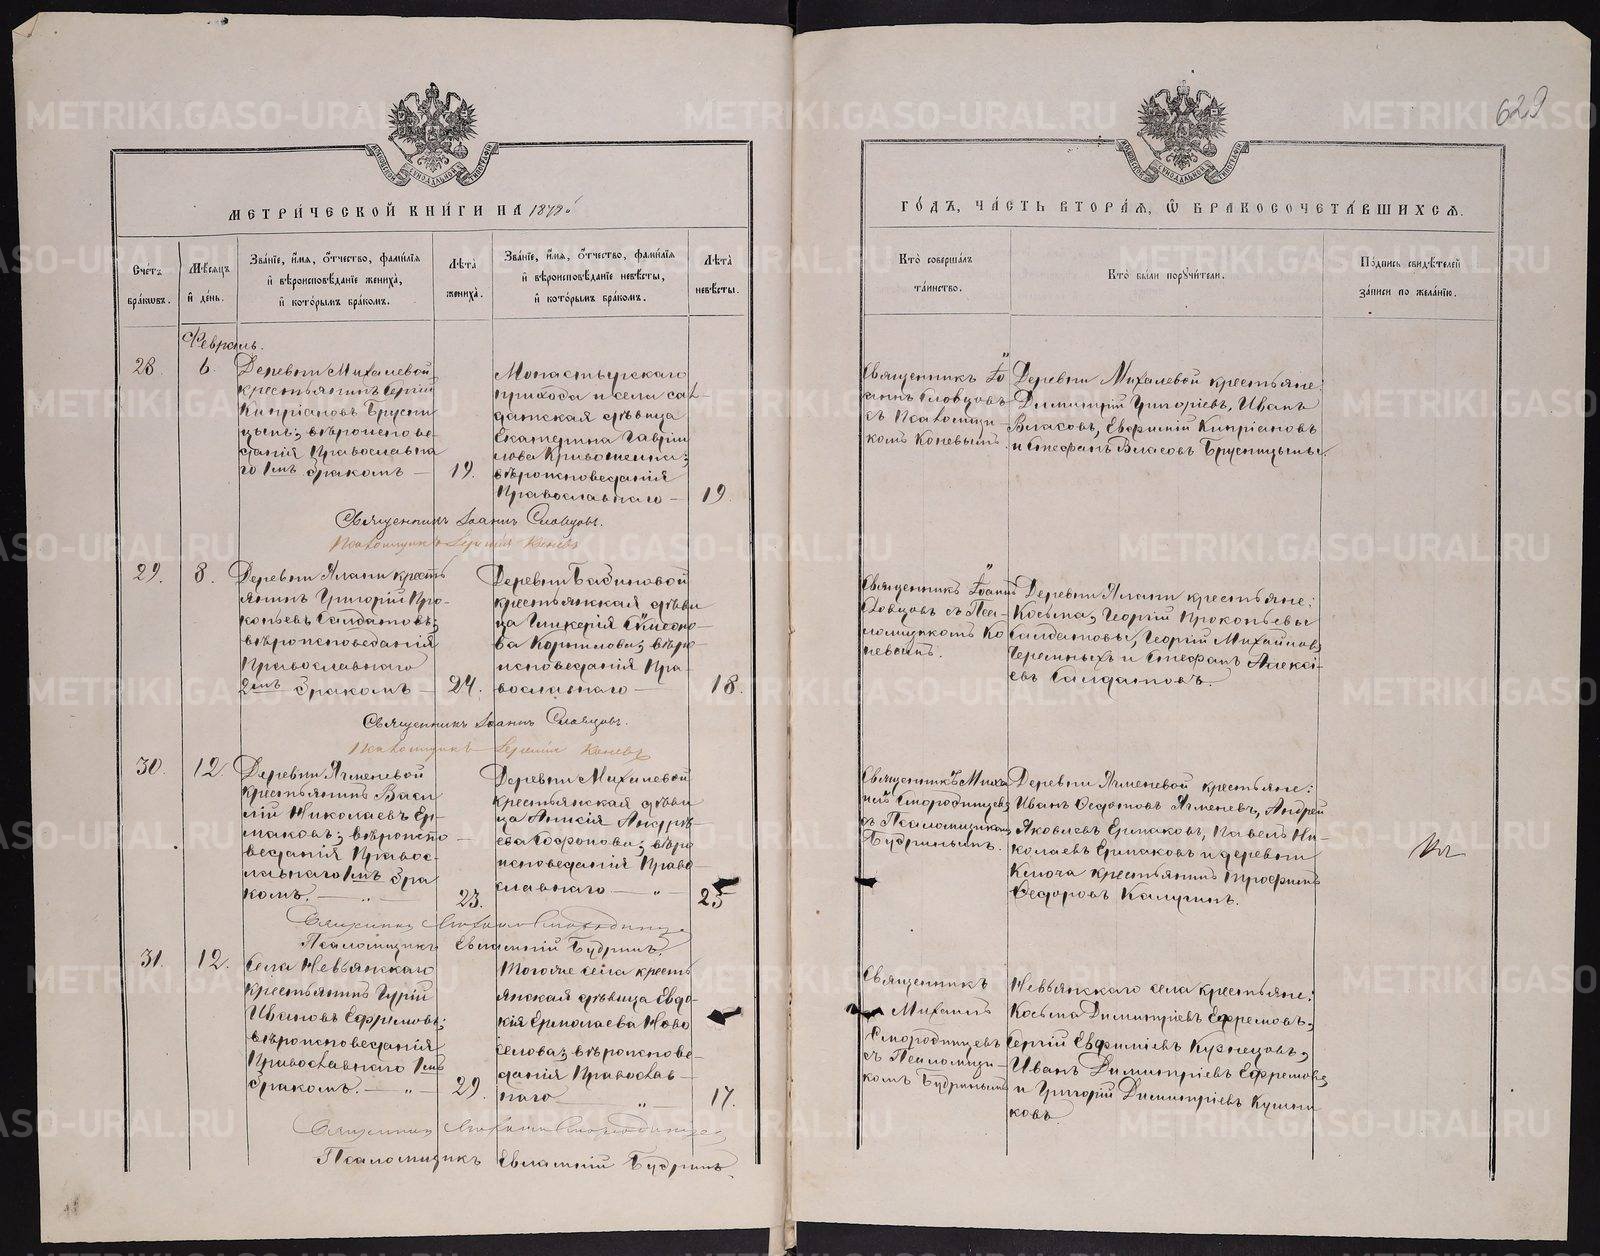 629
МЕТРИ́ЧЕСКОЙ КНИ́ГИ НА 1879й
ГО́ДЪ, ЧА́СТЬ ВТОРА́Ѧ, Ѡ БРАКОСОЧЕТА́ВШИХСѦ.
Сче́тъ бра́кѡвъ.
Мѣ́сѧцъ и҆ де́нь.
Зва́нїе, и҆́мѧ, о҆́тчество, фамилїѧ
и҆ вѣроисповѣ́данїе жениха̀,
и҆ кото́рымъ бра́комъ.
Лѣ́та жениха̀.
Зва́нїе, и҆́мѧ, о҆́тчество, фами́лїѧ
и҆ вѣроисповѣ́данїе невѣ́сты,
и҆ кото́рымъ бра́комъ.
Лѣ́та невѣ́сты.
Кто̀ соверша́лъ
та́инство.
Кто̀ бы́ли порꙋчи́тели.
По́дпись свидѣ́телей
за́писи по жела́нїю.
Февраль.
28.
6.
Деревни Михалевой
крестьянинъ Сергій
Кипріановъ Брусни
цынъ; вѣроиспове-
данія Православна
го 1мъ бракомъ —
19.
Монастырскаго
прихода и села сол-
датская дѣвица
Екатерина Гаврии
лова Кривошеина;
вѣроисповеданія
Православнаго —
19.
Священникъ Іо
аннъ Словцовъ
съ Псаломщи-
комъ Коневымъ
Деревни Михалевой крестьяне:
Димитрій Григоріевъ, Иванъ
Власовъ, Евфимій Кипріановъ
и Стефанъ Власовъ Брусницыны.
Священникъ Іоаннъ Словцовъ.
Псаломщикъ Еремія Коневъ
29.
8.
Деревни Ялани кресть
янинъ Григорій Про-
копьевъ Солдатовъ;
вѣроисповеданія
Православнаго
2мъ бракомъ —
24.
Деревни Бабиновой
крестьянская дѣви
ца Гликерія Сѵмеоно-
ва Корнилова; вѣро-
исповеданія Пра-
вославнаго —
18.
Священникъ Іоаннъ
Словцовъ съ Пса-
ломщикомъ Ко
невымъ.
Деревни Ялани крестьяне:
Косьма, Георгій Прокопьевы
Салдатовы, Георгій Михайловъ
Черемныхъ и Стефанъ Алексі-
евъ Салдатовъ.
Священникъ Іоаннъ Словцовъ.
Псаломщикъ Еремія Коневъ
30.
12.
Деревни Ячменевой
крестьянинъ Васи
лій Николаевъ Ер-
маковъ; вѣроиспо-
веданія Правос-
лавнаго 1мъ бра
комъ. — „ —
23.
Деревни Михалевой
крестьянская дѣви
ца Анисія Андрѣ-
ева Софонова; вѣро
исповеданія Право-
славнаго — „ —
25
Священникъ Миха
илъ Смородинцевъ
съ Псаломщикомъ
Будринымъ.
Деревни Ячменевой крестьяне:
Иванъ Ѳедотовъ Ячменевъ, Андрей
Яковлевъ Ермаковъ, Павелъ Ни-
колаевъ Ермаковъ и деревни
Ключа крестьянинъ Трофимъ
Ѳедоровъ Калугинъ.
Священникъ Михаилъ Смородинцевъ
Псаломщикъ Евлампій Будринъ.
31.
12.
Села Невьянскаго
крестьянинъ Гурій
Ивановъ Ефремовъ;
вѣроисповеданія
Православнаго 1мъ
бракомъ. — „ —
29.
Тогоже села кресть
янская дѣвица Евдо-
кія Ермолаева Ново
селова; вѣроиспове-
данія Православ-
наго „ —
17.
Священникъ
Михаилъ
Смородинцевъ
съ Псаломщи-
комъ Будринымъ
Невьянскаго села крестьяне:
Косьма Димитріевъ Ефремовъ,
Сергій Евфиміевъ Кузнецовъ,
Иванъ Димитріевъ Ефремовъ
и Григорій Димитріевъ Кушни
ковъ.
Священникъ Михаилъ Смородинцевъ
Псаломщикъ Евлампій Будринъ.
METRIKI.GASO-URAL.RU